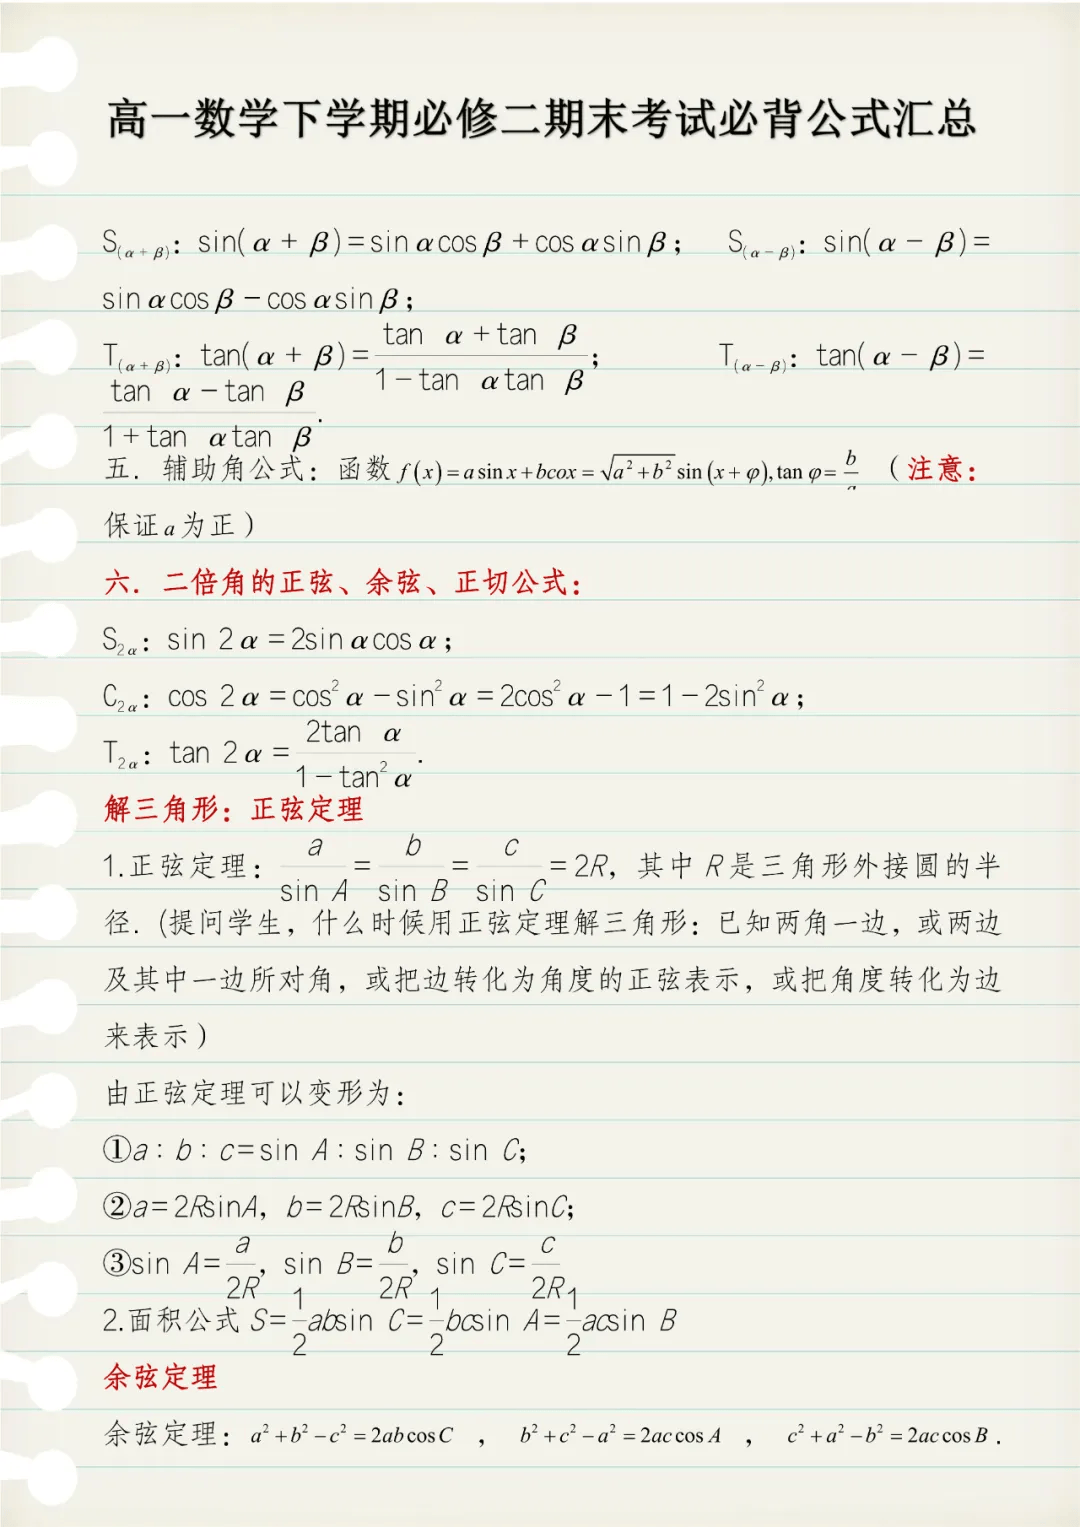 高一数学下学期必修二期末考试必背公式汇总
S(α+β): sin(α+β)=sin αcos β+cos αsin β; S(α-β): sin(α-β)=
sin αcos β-cos αsin β;
T(α+β): tan(α+β)=(tan α+tan β)/(1-tan αtan β); T(α-β): tan(α-β)=
(tan α-tan β)/(1+tan αtan β).
五. 辅助角公式: 函数 f(x)=a sin x+bcox=√(a²+b²) sin(x+φ), tan φ=b/a (注意:
保证a为正)
六. 二倍角的正弦、余弦、正切公式:
S2α: sin 2α=2sin αcos α;
C2α: cos 2α=cos²α-sin²α=2cos²α-1=1-2sin²α;
T2α: tan 2α=2tan α/(1-tan²α).
解三角形: 正弦定理
1.正弦定理: a/sin A=b/sin B=c/sin C=2R, 其中 R是三角形外接圆的半
径. (提问学生, 什么时候用正弦定理解三角形: 已知两角一边, 或两边
及其中一边所对角, 或把边转化为角度的正弦表示, 或把角度转化为边
来表示)
由正弦定理可以变形为:
①a∶b∶c=sin A∶sin B∶sin C;
②a=2RsinA, b=2RsinB, c=2RsinC;
③sin A=a/2R, sin B=b/2R, sin C=c/2R
2.面积公式 S=1/2absin C=1/2bcsin A=1/2acsin B
余弦定理
余弦定理: a²+b²-c²=2abcosC , b²+c²-a²=2accosA , c²+a²-b²=2accosB.